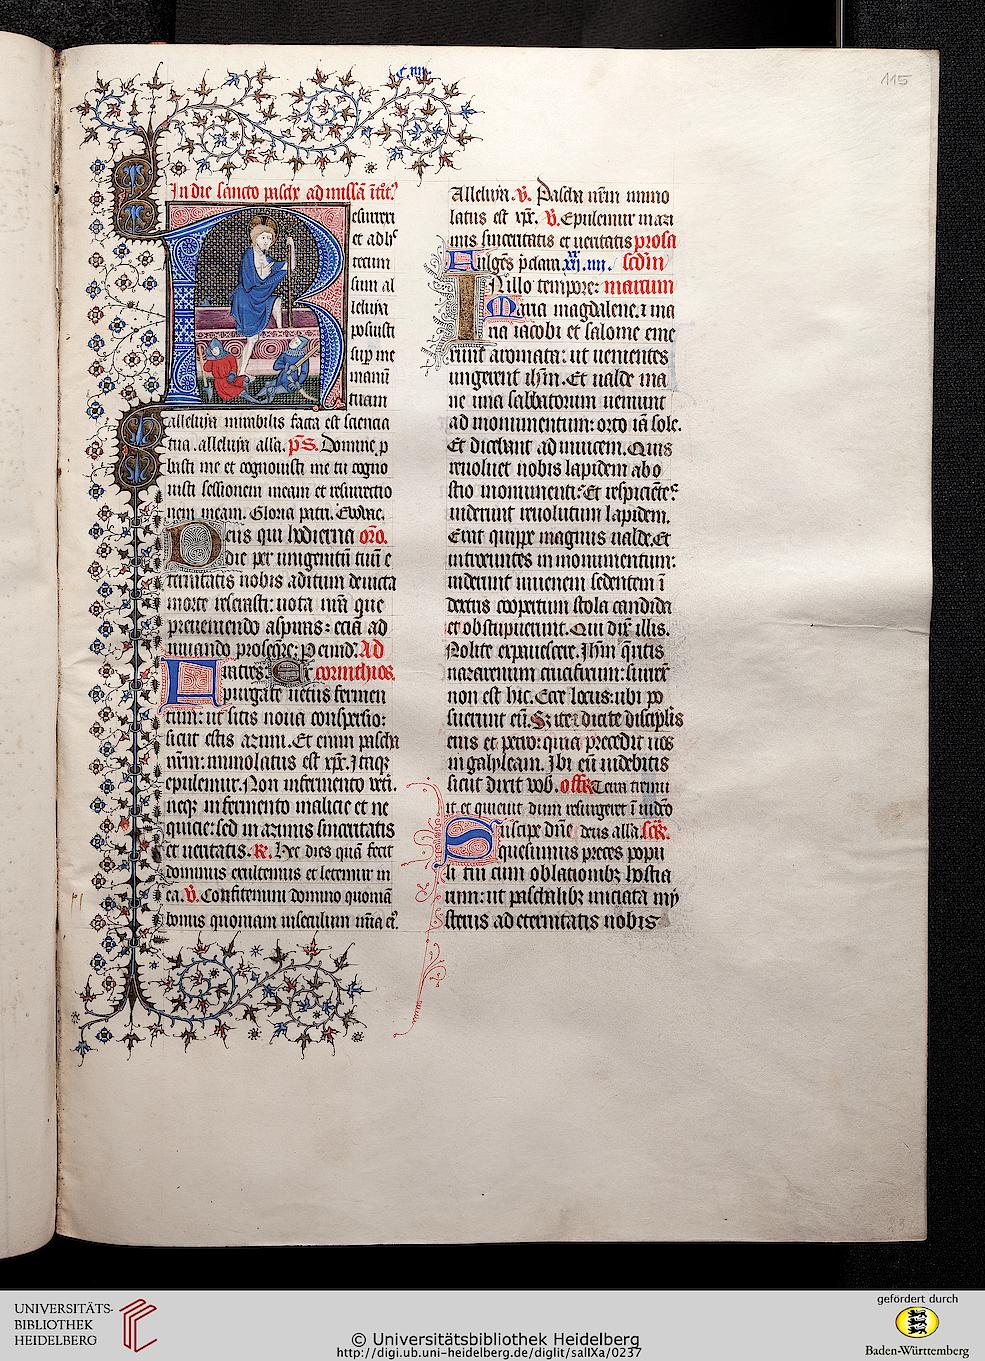 C.iiij.
115
In die sancto pasche ad missā ītᵒ.
Resurrexi
et adhᶜ
tecum
sum al
leluya
posuisti
sup me
manū
tuam
alleluya mirabilis facta est sciencia
tua .alleluya alla. pˢ. Domine p
basti me et cognouisti me tu cogno
uisti sessionem meam et resurrectio
nem meam. Gloria patri. Euouae.
Deus qui hodierna orō.
die per unigenitū tuū e
ternitatis nobis aditum deuicta
morte reserasti: uota nrā que
preueniendo aspiras: eciā ad
iuuando proseqre: P eund. Ad
Fratres: Ex corinthios.
purgate uetus fermen
tum: ut sitis noua conspersio:
sicut estis azimi. Et enim pascha
nrm: immolatus est xpc. Itaqz
epulemur. Non in fermento ueti.
neqz in fermento malicie et ne
quicie: sed in azimis sinceritatis
et ueritatis. R. Hec dies quā fecit
dominus exultemus et letemur in
ea. V. Confitemini domino quoniā
bonus quoniam in seculum mīa eᵒ.
Alleluya. V. Pascha nrm immo
latus est xpc. V. Epulemur in azi
mis sinceritatis et ueritatis prosa
Fulgēs pclara. xxij. iiij. scdm
IN illo tempore: marcum
Maria magdalene: i ma
ria iacobi et salome eme
runt aromata: ut uenientes
ungerent ihm. Et ualde ma
ne una sabbatorum ueniunt
ad monumentum: orto iā sole.
Et dicebant ad inuicem. Quis
reuoluet nobis lapidem ab o
stio monumenti? Et respiciētes
uiderunt reuolutum lapidem.
Erat quippe magnus ualde. Et
introeuntes in monumentum:
uiderunt iuuenem sedentem ī
dextris coopertum stola candida
et obstupuerunt. Qui dix illis.
Nolite expauescere. Ihm qritis
nazarenum crucifixum: surrex
non est hic. Ecce locus: ubi po
suerunt eū. Sz ite: dicite discipls
eius et petro: quia precedit uos
in galyleam. Ibi eū uidebitis
sicut dixit vob. offR Terra tremu
it et quieuit dum resurgeret ī iudiō
Suscipe dne deus alla. scR.
quesumus preces popu
li tui cum oblationibz hostia
rum: ut paschalibz iniciata my
steriis ad eternitatis nobis
23
UNIVERSITÄTS-
BIBLIOTHEK
HEIDELBERG
© Universitätsbibliothek Heidelberg
http://digi.ub.uni-heidelberg.de/diglit/salIXa/0237
gefördert durch
Baden-Württemberg